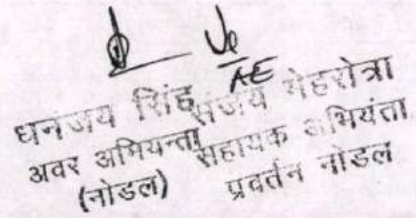 AE
धनंजय सिंह संजय मेहरोत्रा
अवर अभियन्ता सहायक अभियंता
(नोडल) प्रवर्तन नोडल